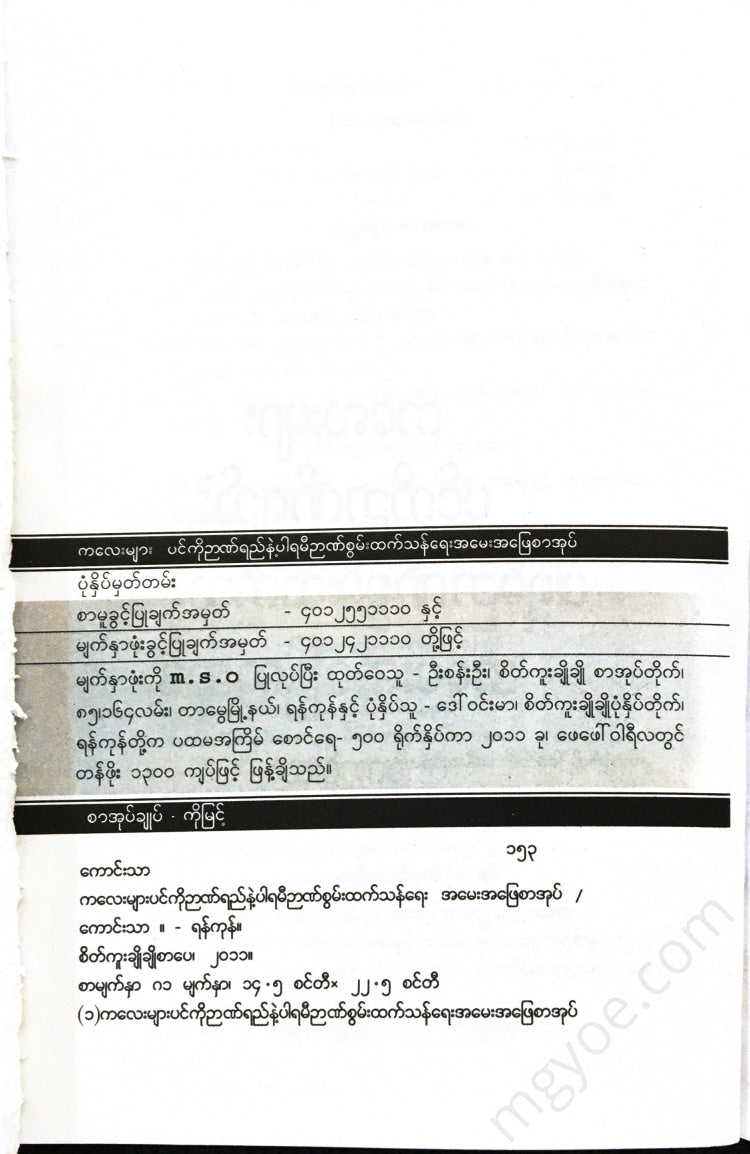 ကလေးများ ပင်ကိုဉာဏ်ရည်နဲ့ပါရမီဉာဏ်စွမ်းထက်သန်ရေးအမေးအဖြေစာအုပ်
ပုံနှိပ်မှတ်တမ်း
စာမူခွင့်ပြုချက်အမှတ် - ၄၀၁၂၅၅၁၁၁၀ နှင့်
မျက်နှာဖုံးခွင့်ပြုချက်အမှတ် - ၄၀၁၂၄၂၁၁၁၀ တို့ဖြင့်
မျက်နှာဖုံးကို m.s.o ပြုလုပ်ပြီး ထုတ်ဝေသူ - ဦးစန်းဦး၊ စိတ်ကူးချိုချို စာအုပ်တိုက်၊
၈၅၊၁၆၄လမ်း၊ တာမွေမြို့နယ်၊ ရန်ကုန်နှင့် ပုံနှိပ်သူ - ဒေါ်ဝင်းမာ၊ စိတ်ကူးချိုချိုပုံနှိပ်တိုက်၊
ရန်ကုန်တို့က ပထမအကြိမ် စောင်ရေ- ၅၀၀ ရိုက်နှိပ်ကာ ၂၀၁၁ ခု၊ ဖေဖော်ဝါရီလတွင်
တန်ဖိုး ၁၃၀၀ ကျပ်ဖြင့် ဖြန့်ချိသည်။
စာအုပ်ချုပ် - ကိုမြင့်
၁၅၃
ကောင်းသာ
ကလေးများပင်ကိုဉာဏ်ရည်နဲ့ပါရမီဉာဏ်စွမ်းထက်သန်ရေး အမေးအဖြေစာအုပ် /
ကောင်းသာ ။ - ရန်ကုန်။
စိတ်ကူးချိုချိုစာပေ၊ ၂၀၁၁။
စာမျက်နှာ ၈၁ မျက်နှာ၊ ၁၄.၅ စင်တီ× ၂၂.၅ စင်တီ
(၁)ကလေးများပင်ကိုဉာဏ်ရည်နဲ့ပါရမီဉာဏ်စွမ်းထက်သန်ရေးအမေးအဖြေစာအုပ်
mgyoe.com